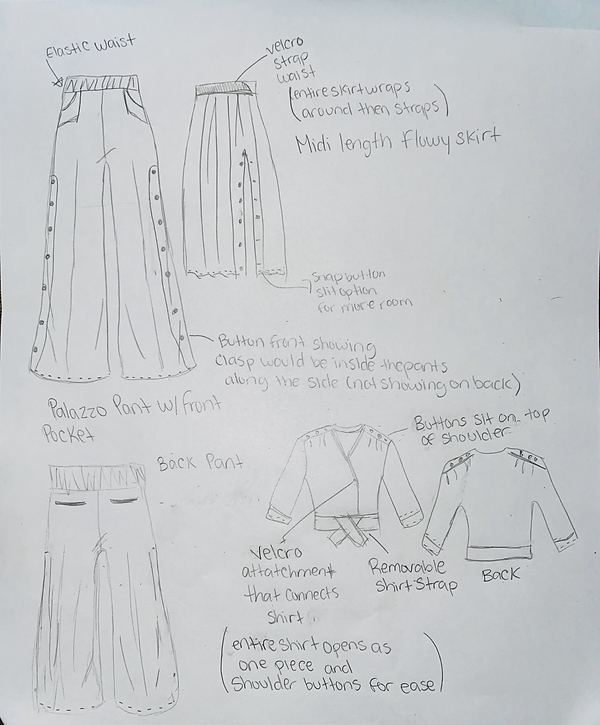 Elastic Waist
Velcro
Strap
Waist
(entire skirt wraps
around then straps)
Midi length flowy skirt
Snap button
slit option
for more room
Button front showing
Clasp would be inside the pants
along the side (not showing on back)
Palazzo Pant w/ front
Pocket
Back Pant
Buttons sit on top
of shoulder
Velcro
attatchment
that connects
shirt
Removable
Shirt Strap
Back
(entire shirt opens as
one piece and
Shoulder buttons for ease)